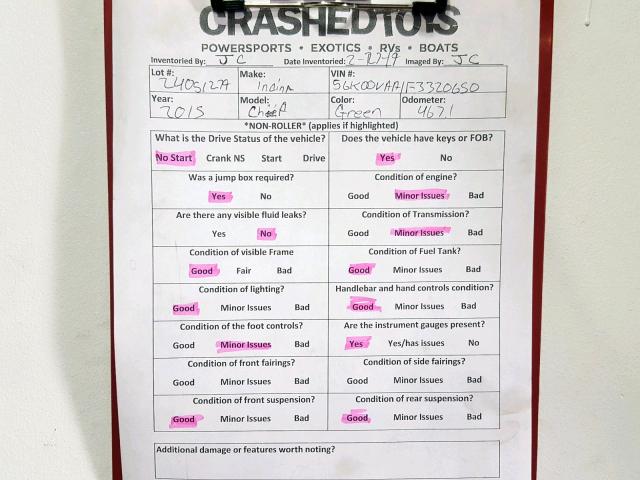 CRASHEDTOYS
POWERSPORTS • EXOTICS • RVs • BOATS
Inventoried By: JC Date Inventoried: Imaged By: JC
Lot #: Make: Indian VIN #:
Year: 2015 Model: Chief Color: Green Odometer: 4671
*NON-ROLLER* (applies if highlighted)
What is the Drive Status of the vehicle? Does the vehicle have keys or FOB?
No Start Crank NS Start Drive Yes No
Was a jump box required? Condition of engine?
Yes No Good Minor Issues Bad
Are there any visible fluid leaks? Condition of Transmission?
Yes No Good Minor Issues Bad
Condition of visible Frame Condition of Fuel Tank?
Good Fair Bad Good Minor Issues Bad
Condition of lighting? Handlebar and hand controls condition?
Good Minor Issues Bad Good Minor Issues Bad
Condition of the foot controls? Are the instrument gauges present?
Good Minor Issues Bad Yes Yes/has issues No
Condition of front fairings? Condition of side fairings?
Good Minor Issues Bad Good Minor Issues Bad
Condition of front suspension? Condition of rear suspension?
Good Minor Issues Bad Good Minor Issues Bad
Additional damage or features worth noting?